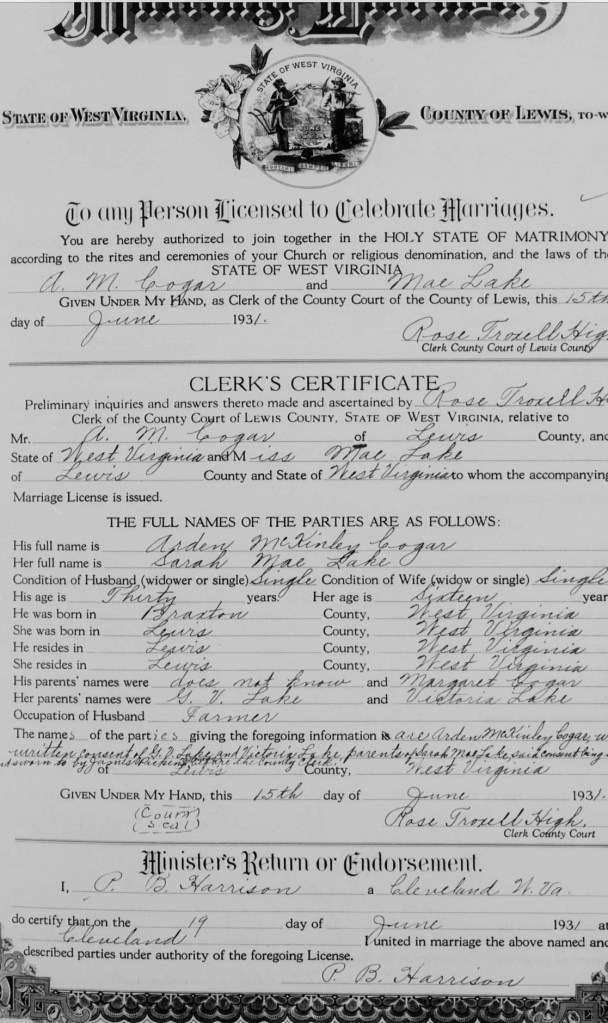 Marriage License
STATE OF WEST VIRGINIA
STATE OF WEST VIRGINIA, COUNTY OF LEWIS, TO-W
MONTANI SEMPER LIBERI
To any Person Licensed to Celebrate Marriages.
You are hereby authorized to join together in the HOLY STATE OF MATRIMONY
according to the rites and ceremonies of your Church or religious denomination, and the laws of the
STATE OF WEST VIRGINIA
A. M. Cogar and Mae Lake
GIVEN UNDER MY HAND, as Clerk of the County Court of the County of Lewis, this 15th
day of June 1931.
Rose Troxell High
Clerk County Court of Lewis County
CLERK'S CERTIFICATE
Preliminary inquiries and answers thereto made and ascertained by Rose Troxell H
Clerk of the County Court of LEWIS COUNTY, STATE OF WEST VIRGINIA, relative to
Mr. A. M. Cogar of Lewis County, and
State of West Virginia and Miss Mae Lake
of Lewis County and State of West Virginia to whom the accompanying
Marriage License is issued.
THE FULL NAMES OF THE PARTIES ARE AS FOLLOWS:
His full name is Arden McKinley Cogar
Her full name is Sarah Mae Lake
Condition of Husband (widower or single) Single Condition of Wife (widow or single) Single
His age is Thirty years. Her age is Sixteen year
He was born in Braxton County, West Virginia
She was born in Lewis County, West Virginia
He resides in Lewis County, West Virginia
She resides in Lewis County, West Virginia
His parents' names were does not know and Margaret Cogar
Her parents' names were G. V. Lake and Victoria Lake
Occupation of Husband Farmer
The names of the parties giving the foregoing information is are Arden McKinley Cogar, w
written consent of G. V. Lake and Victoria Lake, parents of Sarah Mae Lake said consent being
sworn to by James before the County Clerk
of Lewis County, West Virginia
GIVEN UNDER MY HAND, this 15th day of June 1931.
(Court Seal)
Rose Troxell High,
Clerk County Court
Minister's Return or Endorsement.
I, P. B. Harrison a Cleveland W. Va.
do certify that on the 19 day of June 1931 at
Cleveland I united in marriage the above named and
described parties under authority of the foregoing License.
P. B. Harrison